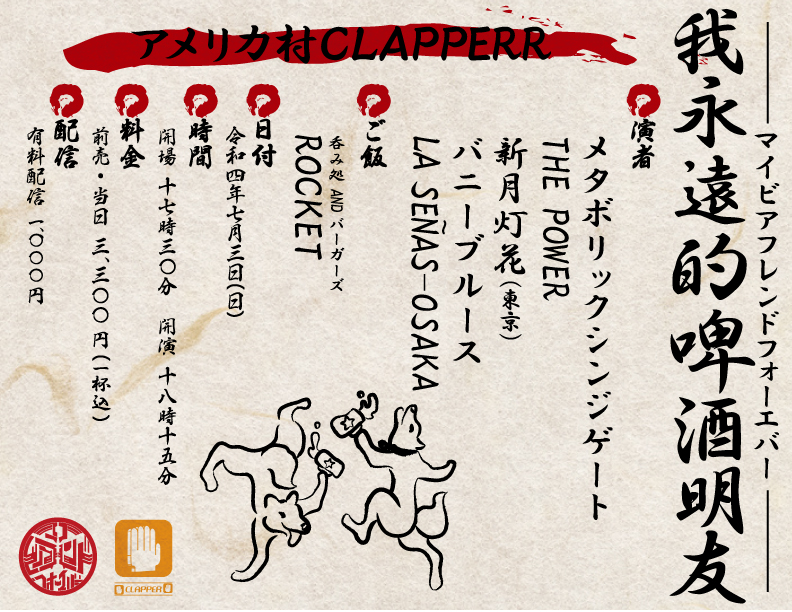 アメリカ村CLAPPERR
我永遠的啤酒明友
マイビアフレンドフォーエバー
演者
メタボリックシンジゲート
THE POWER
新月灯花(東京)
バニーブルース
LA SEÑAS-OSAKA
ご飯
呑み処 AND バーガーズ
ROCKET
日付
令和四年七月三日(日)
時間
開場 十七時三〇分 開演 十八時十五分
料金
前売・当日 三、三〇〇 円(一杯込)
配信
有料配信 一、〇〇〇 円
CLAPPER